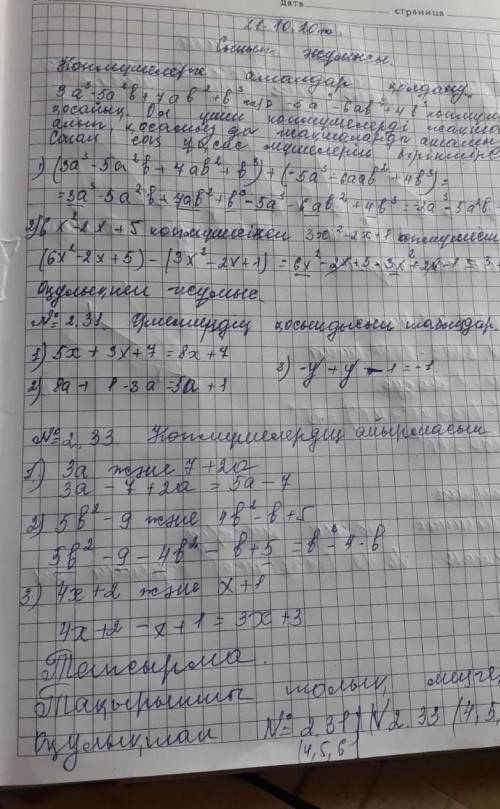 дата
страница
21.10.20ж.
Сынып жұмысы.
Көпмүшелерге амалдар қолдану.
3a³-5a²b+7ab²+b³ -5a³-6ab²+4b³
қосайық. Ол үшін көпмүшелерді
алып, қосамыз да жақшаларды ашамыз
Содан соң ұқсас мүшелерін біріктіре
1) (3a³-5a²b+7ab²+b³)+(-5a³-6ab²+4b³)=
=3a³-5a²b+7ab²+b³-5a³-6ab²+4b³=-2a³-5a²b-
2) 6x²-2x+5 көпмүшесінен 3x²-2x+1 көпмүшесін
(6x²-2x+5)-(3x²-2x+1)=6x²-2x+5-3x²+2x-1=3
Оқулықпен жұмыс.
№2.31 Өрнектердің қосындысын табыңдар.
1) 5x+3x+7=8x+7
3) -y+y-1=-1
2) 8a+ 8-3a=3a+1
№2,33. Көпмүшелердің айырмасын
1) 3a және 7+2a
3a-7+2a=5a-7
2) 5b²-9 және 4b²-b+5
5b²-9-4b²-b+5=b²-4-b
3) 4x+2 және x+1
4x+2-x+1=3x+3
Тапсырма.
Тақырыпты толық меңге
Оқулықтан №2.31 №2.33 (4,5,
(4,5,6)